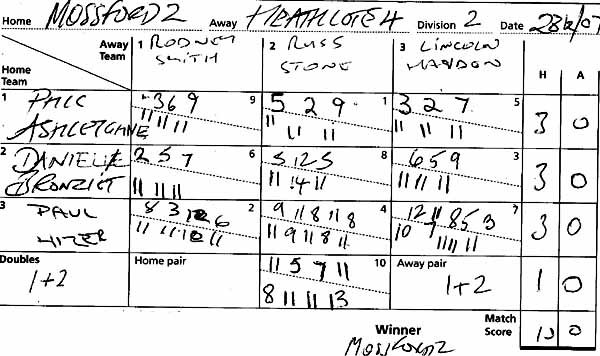 Home MOSSFORD 2 Away HEATHCOTE 4 Division 2 Date
Away Team 1 RODNEY SMITH 2 RUSS STONE 3 LINCOLN H A
Home Team
1 PHIL 3 6 9 9 5 2 9 1 3 2 7 5 3 0
11 11 11 11 11 11 11 11 11
2 DANIEL 2 5 7 6 5 12 5 8 6 5 9 3 3 0
11 11 11 11 14 11 11 11 11
3 PAUL 8 3 12 6 2 9 11 8 11 8 4 12 11 8 5 3 7 3 0
11 11 10 11 11 9 11 8 11 10 7 11 11 11
Doubles Home pair 11 5 7 11 10 Away pair 1 0
1+2 8 11 11 13 1+2
Winner Match Score 10 0
MOSSFORD 2